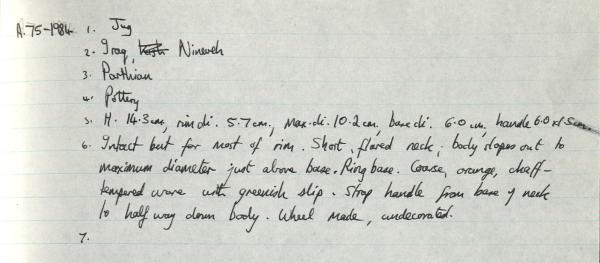 A.75-1984 1. Jug
2. Iraq, Nineveh
3. Parthian
4. Pottery
5. H. 14.3cm, rim di. 5.7cm, Max. di. 10.2cm, base di. 6.0cm, handle 6.0x1.5cm.
6. Intact but for most of rim. Short, flared neck; body slopes out to
maximum diameter just above base. Ring base. Coarse, orange, chaff-
tempered ware with greenish slip. Strap handle from base of neck
to half way down body. Wheel made, undecorated.
7.